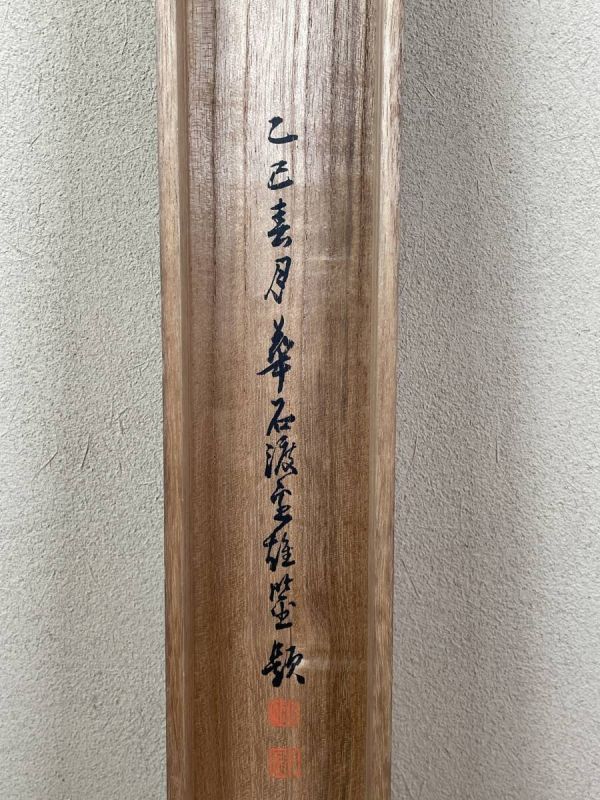 乙巳春月華石渡雄鑒題